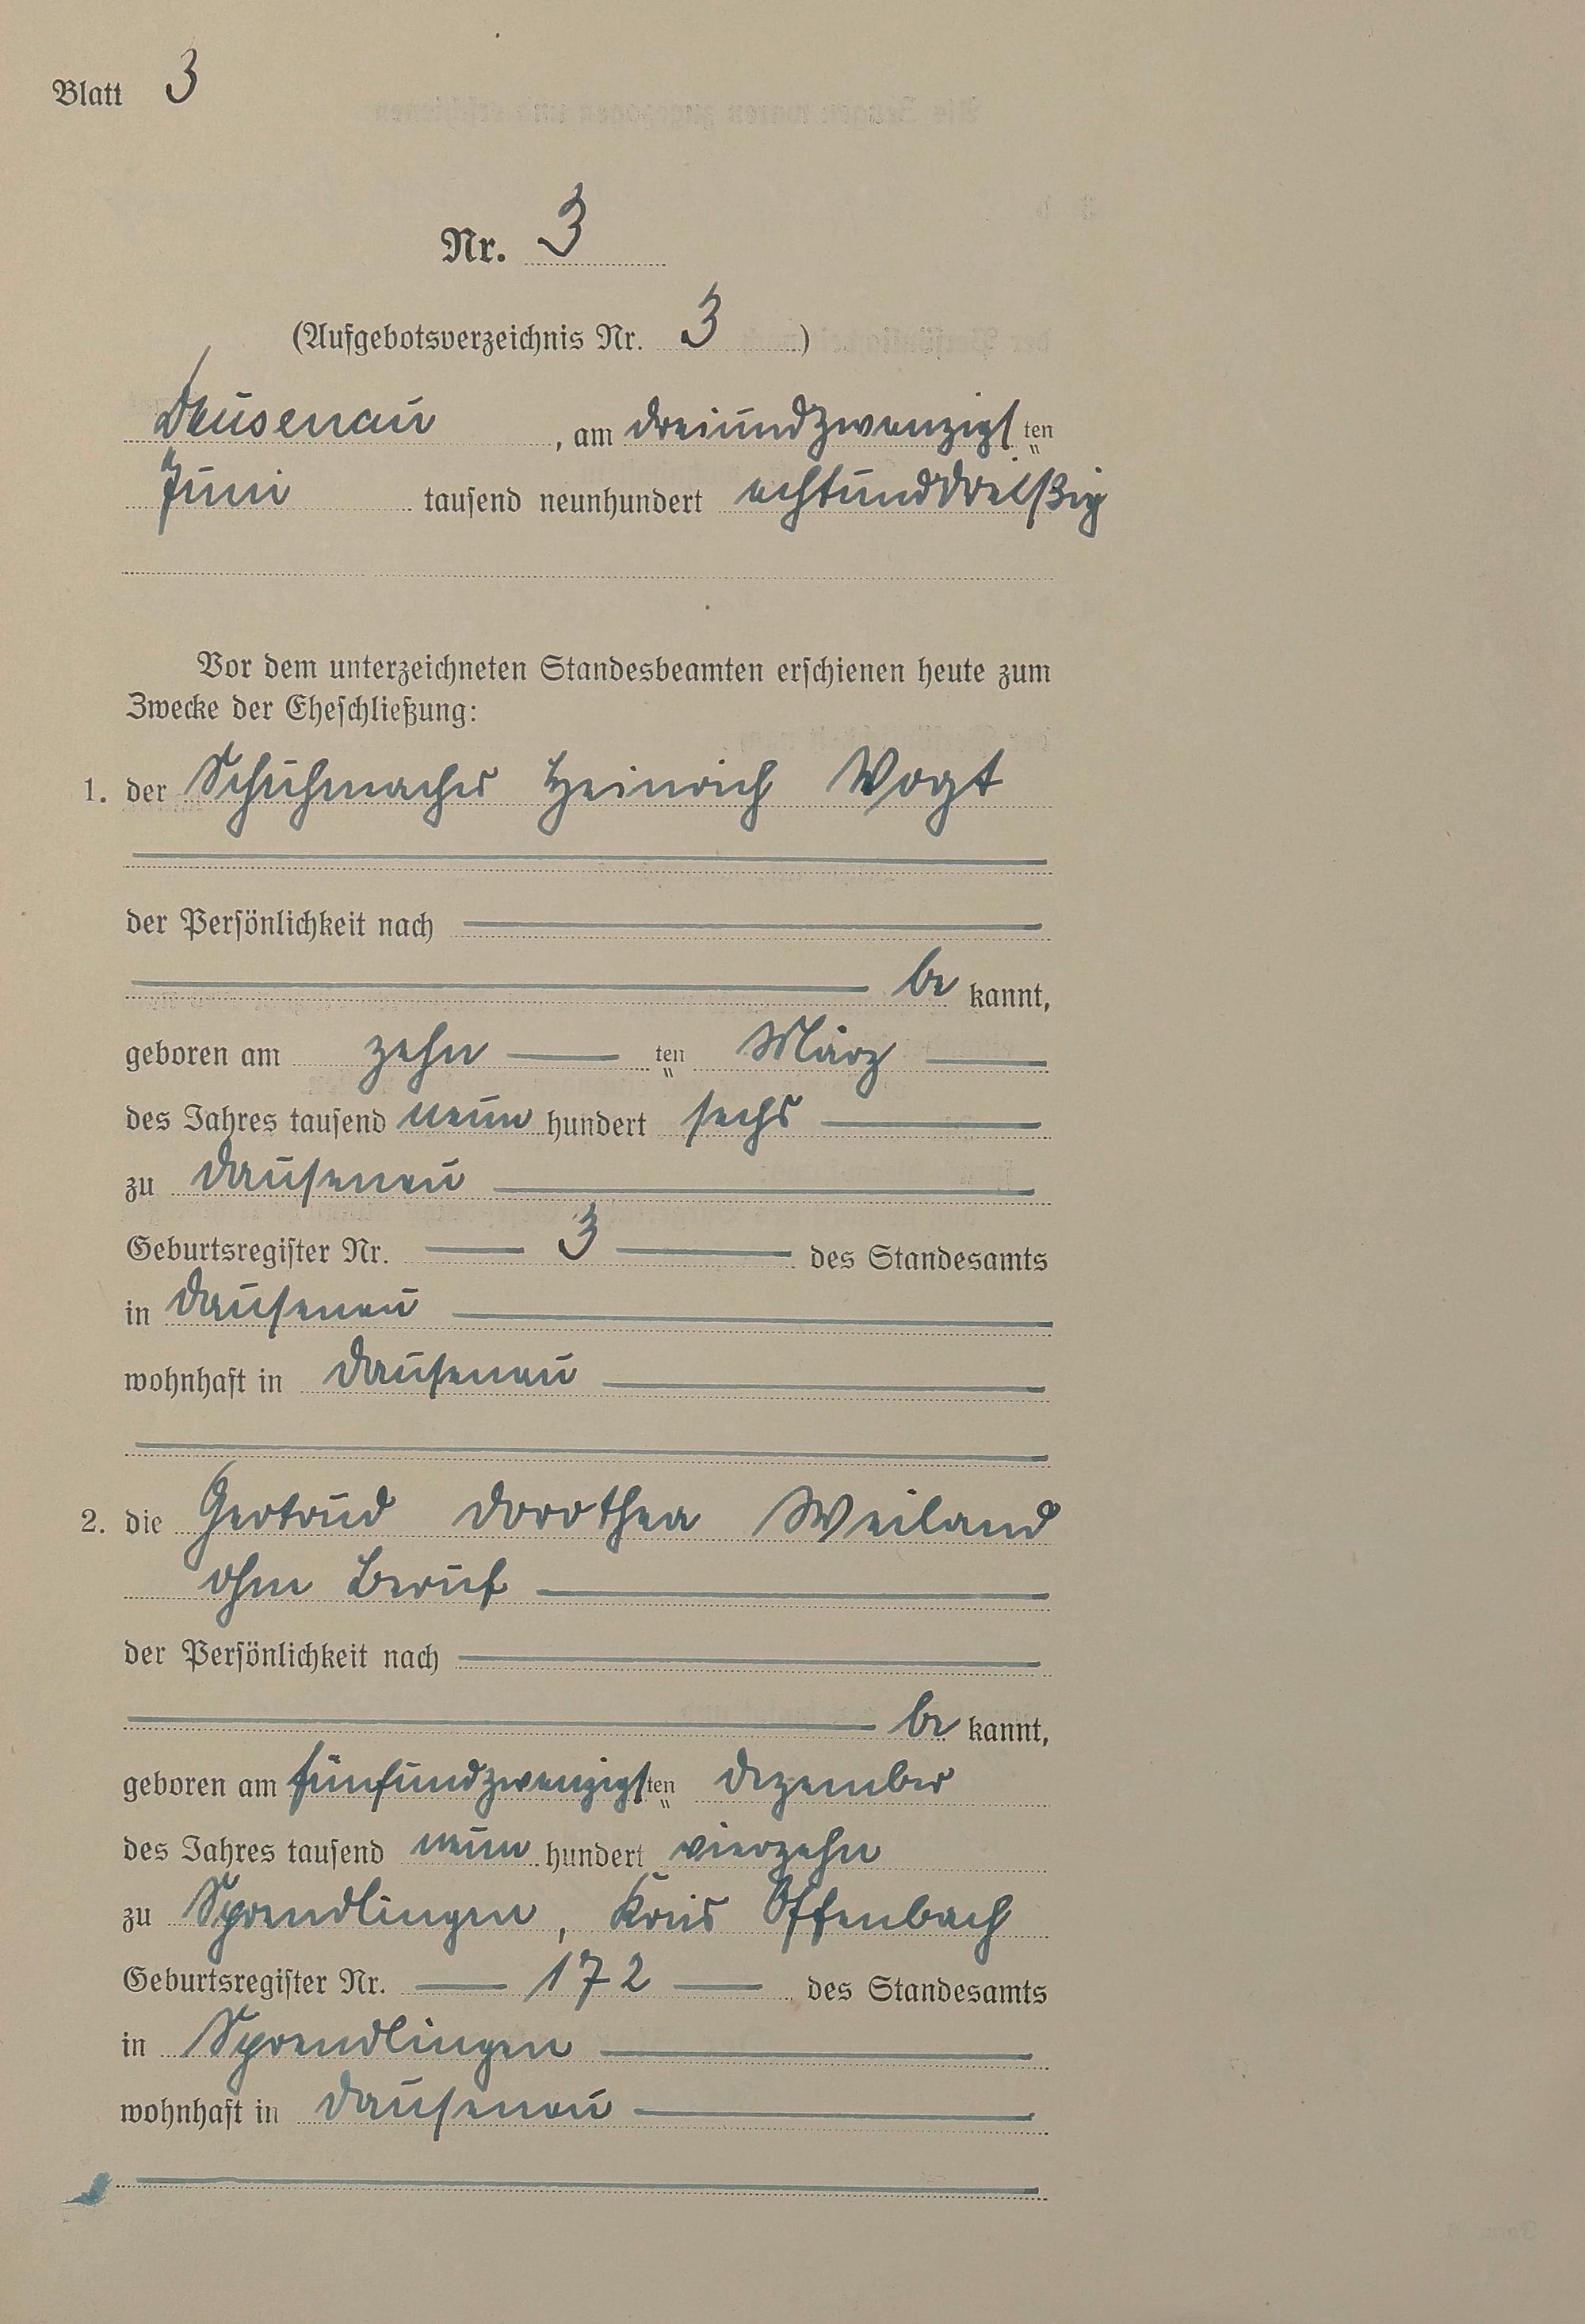 Blatt 3
Nr. 3
(Aufgebotsverzeichnis Nr. 3)
Dausenau, am dreiundzwanzigsten
Juni tausend neunhundert achtunddreißig
Vor dem unterzeichneten Standesbeamten erschienen heute zum
Zwecke der Eheschließung:
1. der Schuhmacher Heinrich Vogt
der Persönlichkeit nach
be kannt,
geboren am zehn ten März
des Jahres tausend neun hundert sechs
zu Dausenau
Geburtsregister Nr. 3 des Standesamts
in Dausenau
wohnhaft in Dausenau
2. die Gertrud Dorothea Weiland
ohne Beruf
der Persönlichkeit nach
be kannt,
geboren am fünfundzwanzigsten Dezember
des Jahres tausend neun hundert vierzehn
zu Sprendlingen, Kreis Offenbach
Geburtsregister Nr. 172 des Standesamts
in Sprendlingen
wohnhaft in Dausenau